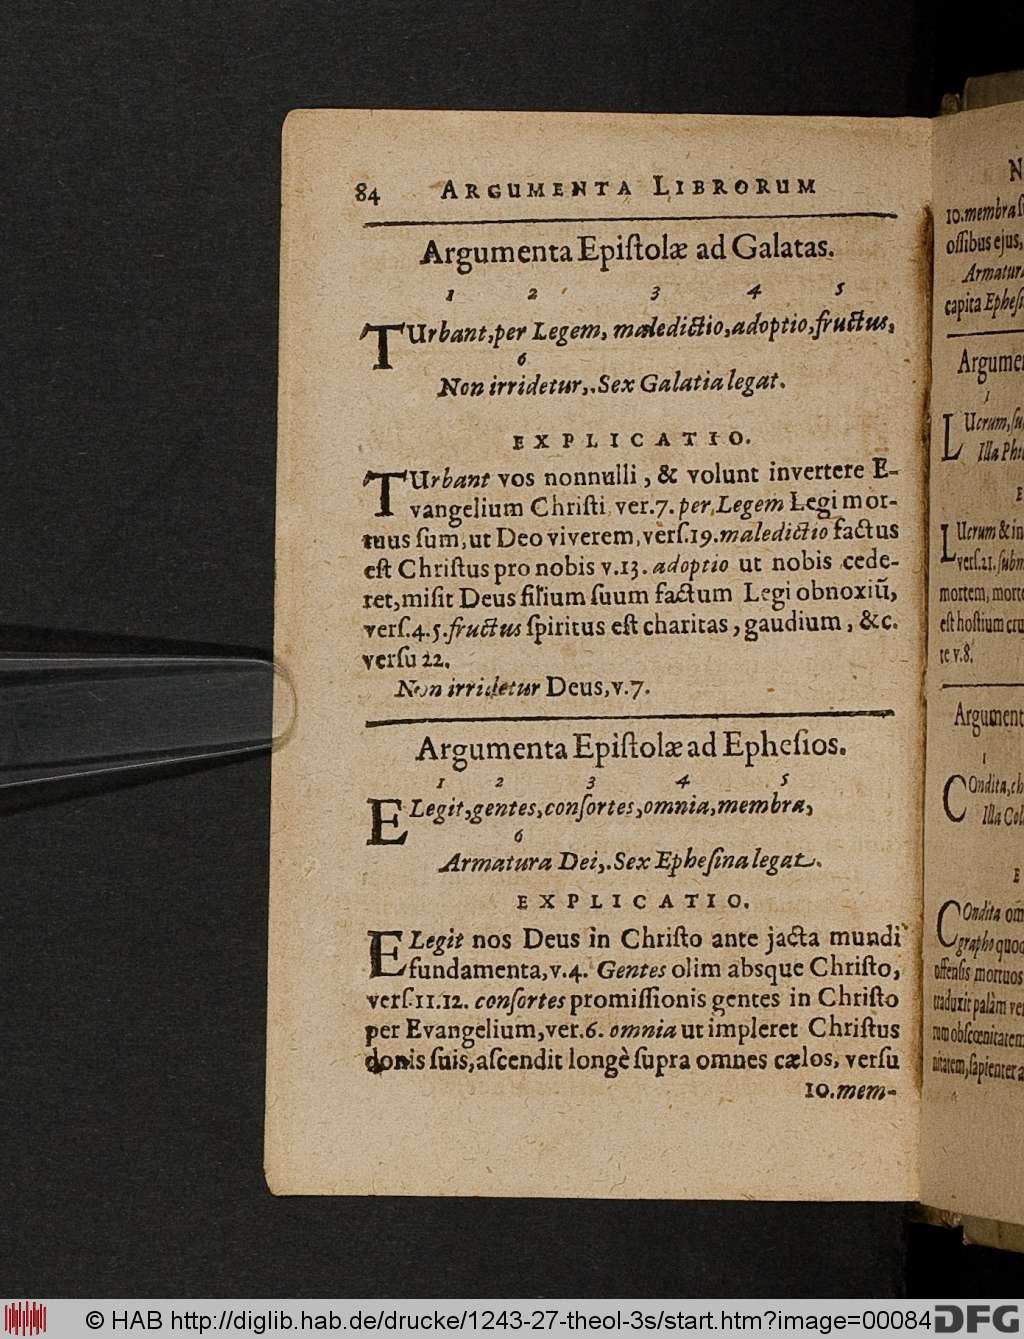 84 ARGUMENTA LIBRORUM
Argumenta Epiſtolæ ad Galatas.
1 2 3 4 5
TUrbant, per Legem, maledictio, adoptio, fructus,
6
Non irridetur,. Sex Galatia legat.
EXPLICATIO.
TUrbant vos nonnulli, & volunt invertere E-
vangelium Chriſti ver.7. per Legem Legi mor-
tuus ſum, ut Deo viverem, verſ.19. maledictio factus
eſt Chriſtus pro nobis v.13. adoptio ut nobis cede-
ret, miſit Deus filium ſuum factum Legi obnoxiū,
verſ.4.5. fructus ſpiritus eſt charitas, gaudium, &c.
verſu 22.
Non irridetur Deus, v.7.
Argumenta Epiſtolæ ad Epheſios.
1 2 3 4 5
ELegit, gentes, conſortes, omnia, membra,
6
Armatura Dei,. Sex Epheſina legat.
EXPLICATIO.
ELegit nos Deus in Chriſto ante jacta mundi
fundamenta, v.4. Gentes olim absque Chriſto,
verſ.11.12. conſortes promiſſionis gentes in Chriſto
per Evangelium, ver.6. omnia ut impleret Chriſtus
donis ſuis, aſcendit longè ſupra omnes cælos, verſu
10. mem-
10. membra
oſſibus ejus,
capita
1
LUcrum,
Illa
LUcrum & in
verſ.21.
mortem,
eſt hoſtium
te v.8.
1
COndita,
Illa
COndita
grapho quod
offenſis mortuos
traduxit palàm
rum obſcœnitatem
nitatem, ſapienter
© HAB http://diglib.hab.de/drucke/1243-27-theol-3s/start.htm?image=00084
DFG